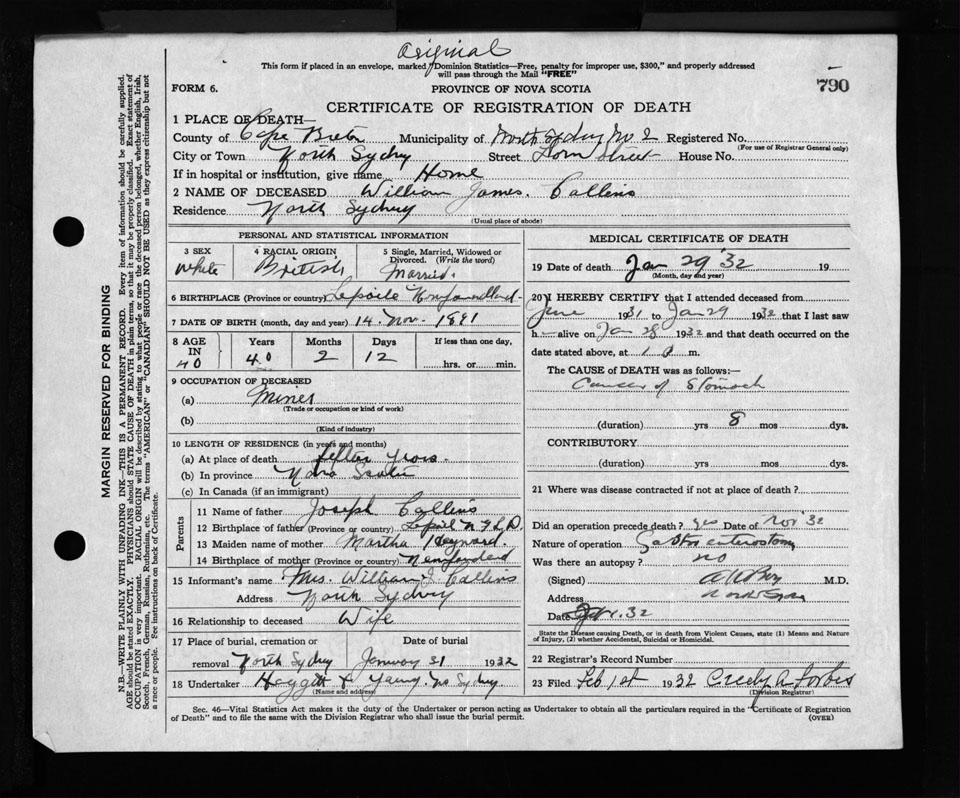 Original
This form if placed in an envelope, marked "Dominion Statistics—Free, penalty for improper use, $300," and properly addressed
will pass through the Mail "FREE"
790
FORM 6.
PROVINCE OF NOVA SCOTIA
CERTIFICATE OF REGISTRATION OF DEATH
1 PLACE OF DEATH—
County of Cape Breton Municipality of North Sydney No 2 Registered No.
(For use of Registrar General only)
City or Town North Sydney Street Street House No.
If in hospital or institution, give name Home
2 NAME OF DECEASED William James. Callens
Residence North Sydney
(Usual place of abode)
PERSONAL AND STATISTICAL INFORMATION
3 SEX
White
4 RACIAL ORIGIN
British
5 Single, Married, Widowed or
Divorced. (Write the word)
Married.
6 BIRTHPLACE (Province or country) Lapoile Newfoundland
7 DATE OF BIRTH (month, day and year) 14. Nov. 1891
8 AGE
IN
40
Years
40
Months
2
Days
12
If less than one day,
hrs. or min.
9 OCCUPATION OF DECEASED
(a) Miner
(Trade or occupation or kind of work)
(b)
(Kind of industry)
10 LENGTH OF RESIDENCE (in years and months)
(a) At place of death years.
(b) In province Nova Scotia
(c) In Canada (if an immigrant)
Parents
11 Name of father Joseph Callens
12 Birthplace of father (Province or country) N F L D.
13 Maiden name of mother Martha Heynard.
14 Birthplace of mother (Province or country) Newfoundland
15 Informant's name Mrs. William J Callens
Address North Sydney
16 Relationship to deceased Wife
17 Place of burial, cremation or
removal North Sydney
Date of burial
January 31 1932
18 Undertaker & Young. No Sydney
(Name and address)
MEDICAL CERTIFICATE OF DEATH
19 Date of death Jan 29 '32 19
(Month, day and year)
20 I HEREBY CERTIFY that I attended deceased from
June 1931 to Jan 29 1932 that I last saw
h alive on Jan 28 1932 and that death occurred on the
date stated above, at 1 a m.
The CAUSE of DEATH was as follows:—
Cancer of Stomach
(duration) yrs 8 mos dys.
CONTRIBUTORY
(duration) yrs mos dys.
21 Where was disease contracted if not at place of death?
Did an operation precede death? yes Date of Nov '32
Nature of operation Gastroenterostomy
Was there an autopsy? no
(Signed) M.D.
Address
Date 32
State the Disease causing Death, or in death from Violent Causes, state (1) Means and Nature
of Injury, (2) whether Accidental, Suicidal or Homicidal.
22 Registrar's Record Number
23 Filed Feb 1st 1932 A. Forbes
(Division Registrar)
Sec. 46—Vital Statistics Act makes it the duty of the Undertaker or person acting as Undertaker to obtain all the particulars required in the "Certificate of Registration
of Death" and to file the same with the Division Registrar who shall issue the burial permit.
(OVER)
MARGIN RESERVED FOR BINDING
N.B.—WRITE PLAINLY WITH UNFADING INK—THIS IS A PERMANENT RECORD. Every item of information should be carefully supplied.
AGE should be stated EXACTLY. PHYSICIANS should STATE CAUSE OF DEATH in plain terms, so that it may be properly classified. Exact statement of
OCCUPATION is very important. RACIAL ORIGIN will be described by stating to what people or race the deceased person belonged, whether English, Irish,
Scotch, French, German, Russian, Ruthenian, etc. The terms "AMERICAN" or "CANADIAN" SHOULD NOT BE USED as they express citizenship but not
a race or people. See instructions on back of Certificate.